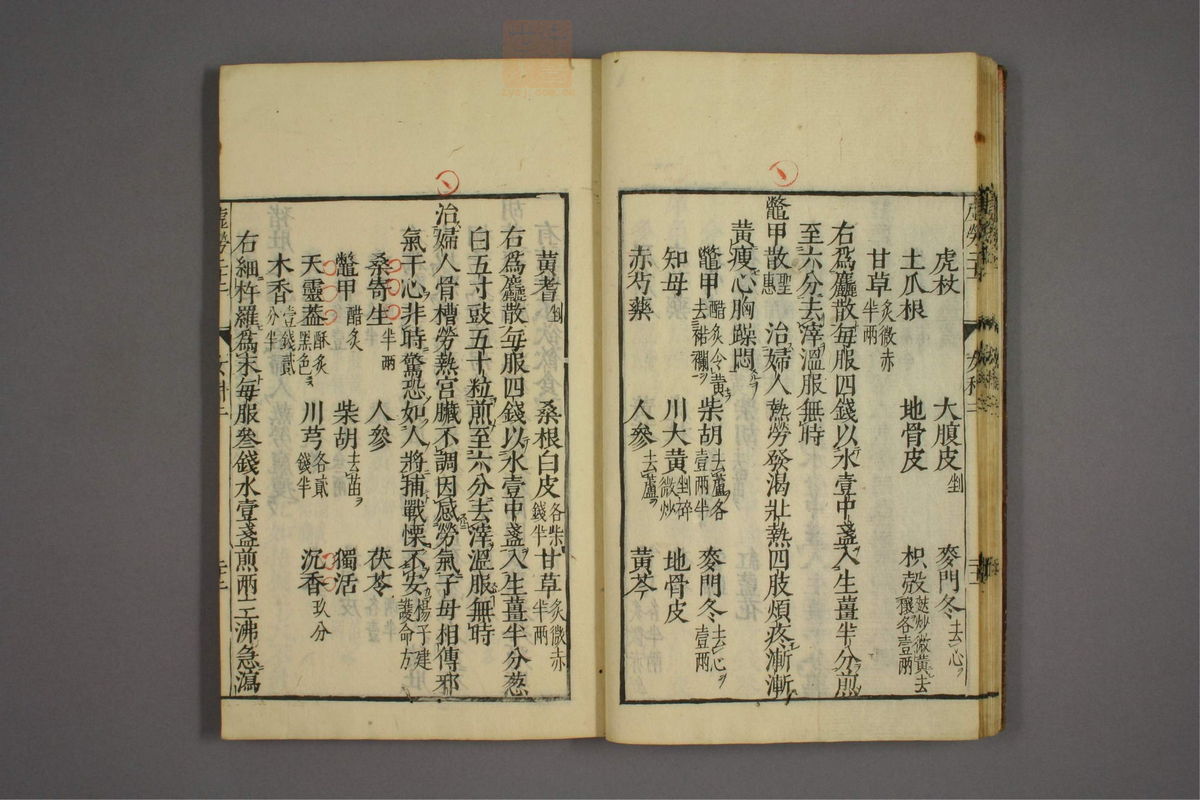 虎杖 大腹皮剉 麥門冬去心
土瓜根 地骨皮 枳殼麩炒微黃去穰各壹兩
甘草炙微赤半兩
右爲麤散每服四錢以水壹中盞入生薑半分煎
至六分去滓溫服無時
鼈甲散聖惠 治婦人熱勞發渴壯熱四肢煩疼漸漸
黃瘦心胸躁悶
鼈甲醋炙令黃去裙襴 柴胡去蘆各壹兩半 麥門冬去心壹兩
知母 川大黃剉碎微炒 地骨皮
赤芍藥 人參去蘆 黃芩
黃耆剉 桑根白皮各柒錢半 甘草炙微赤半兩
右爲麤散每服四錢以水壹中盞入生薑半分葱
白五寸豉五十粒煎至六分去滓溫服無時
治婦人骨槽勞熱宮臟不調因感勞氣子母相傳邪
氣干心非時驚恐如人將捕戰慄不安楊子建護命方
桑寄生半兩 人參 茯苓
鼈甲醋炙 柴胡去苗 獨活
天靈蓋酥炙黑色壹錢貳分半 川芎各貳錢半 沉香玖分
木香
右細杵羅爲末每服參錢水壹盞煎兩三沸急瀉